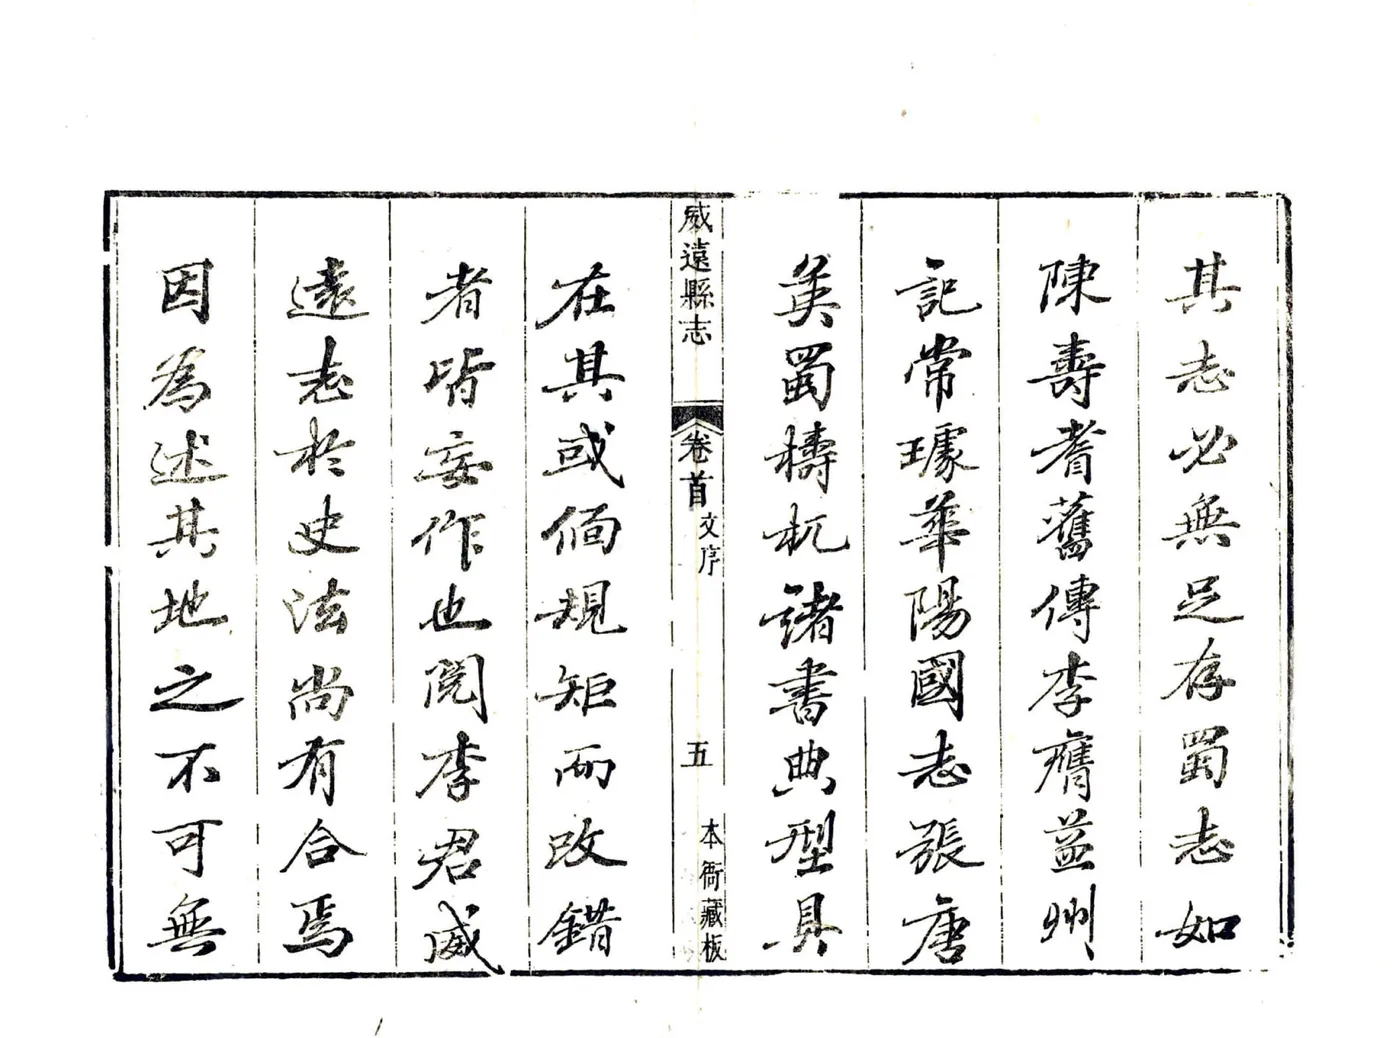 其志必無足存蜀志如
陳壽耆舊傳李膺益州
記常璩華陽國志張唐
英蜀檮杌諸書典型具
威遠縣志 卷首 文序 五 本衙藏板
在其或偭規矩而改錯
者皆妄作也閱李君威
遠志於史法尚有合焉
因為述其地之不可無